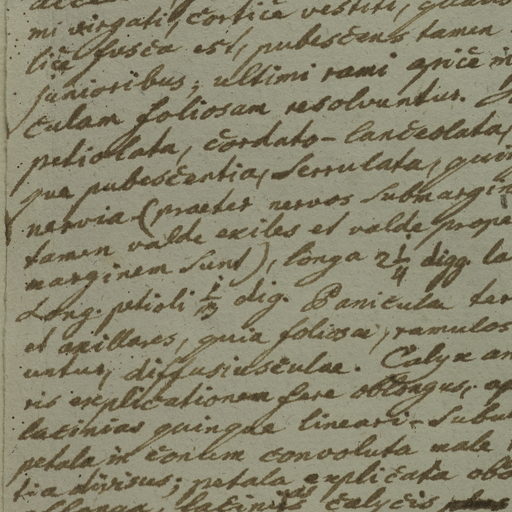 mi virgati, cortice vestiti,
lice fusca est, pubescens tamen
junioribus; ultimi rami apice in
culam foliosam resolvuntur.
petiolata, cordato-lanceolata,
que pubescentia, serrulata, quin
nervia (praeter nervos submargin
tamen valde exiles et valde prope
marginem sunt), longa 2 1/4 digg. la
Long. petioli 1/3 dig. Paniculae ter
et axillares, quia foliosae, ramulos
untur, diffusiusculae. Calyx an
ris explicationem fere oblongus, ap
lacinias quinque lineari-subu
petala in conum convoluta male
tia divisus; petala explicata obo
laciniis calycis